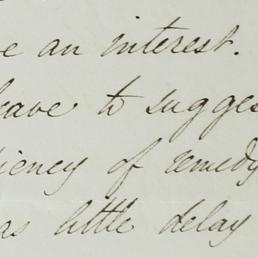 e an interest.
leave to sugges
iency of remedy
as little delay